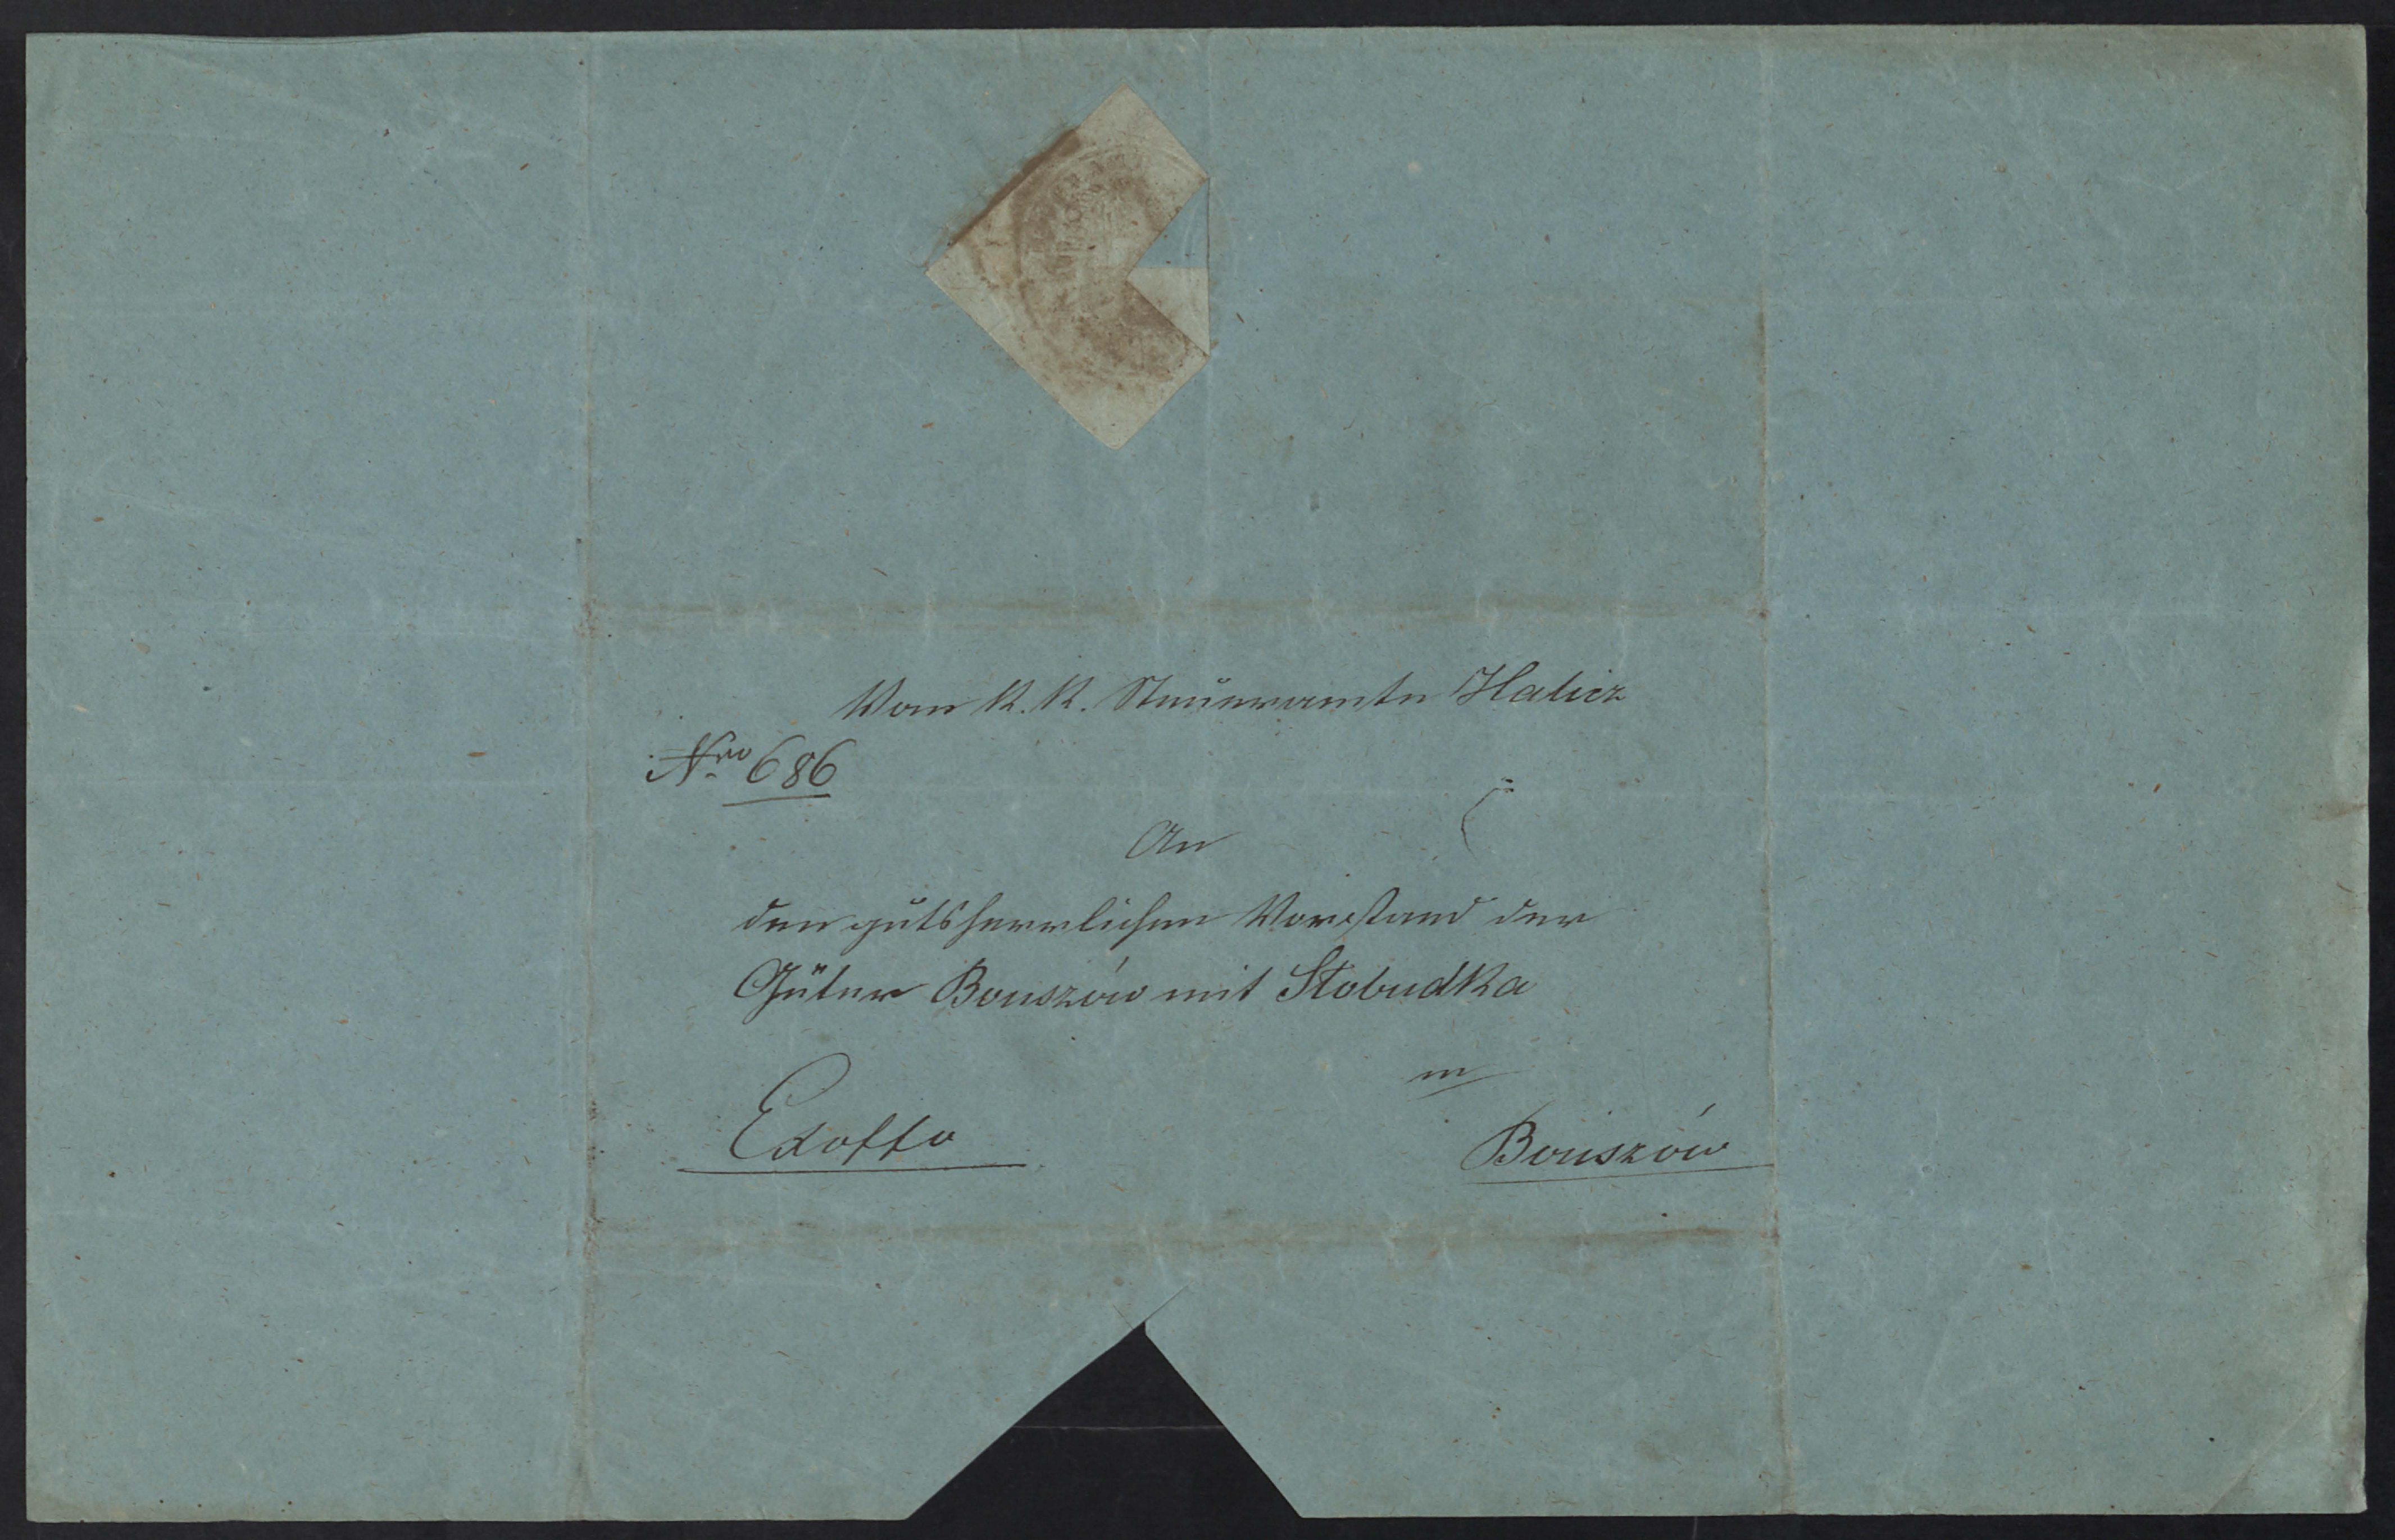 Vom K. K. Steueramte Halicz
Nro 686
An
den gutsherrlichen Vorstand der
Güter Bouszów mit Słobudka
in
Exoffo
Bouszów